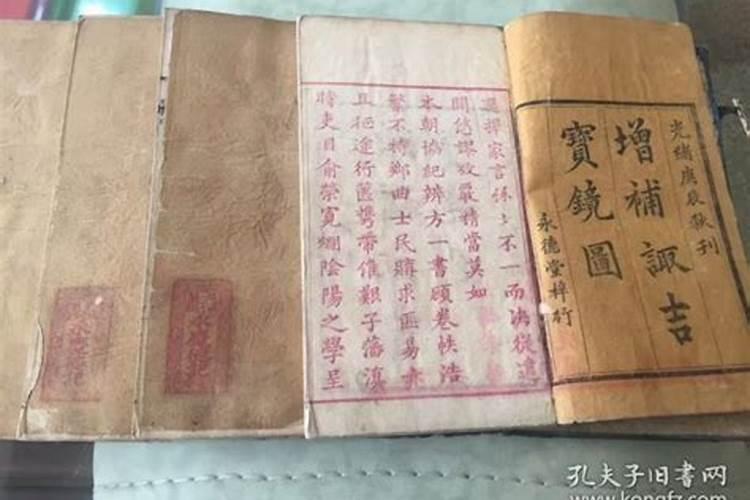 光緒庚辰秋刊
增補諏吉
寶鏡圖
永德堂梓行
選擇家言不一而決從違
間悠謬攷嚴精當莫如
本朝協紀辨方一書顧卷帙浩
繁不特鄉曲士民購求匪易亦
且征途行篋攜帶維艱予藩滇
時吏目俞榮寬嫻陰陽之學呈
孔夫子旧书网
www.kongfz.com